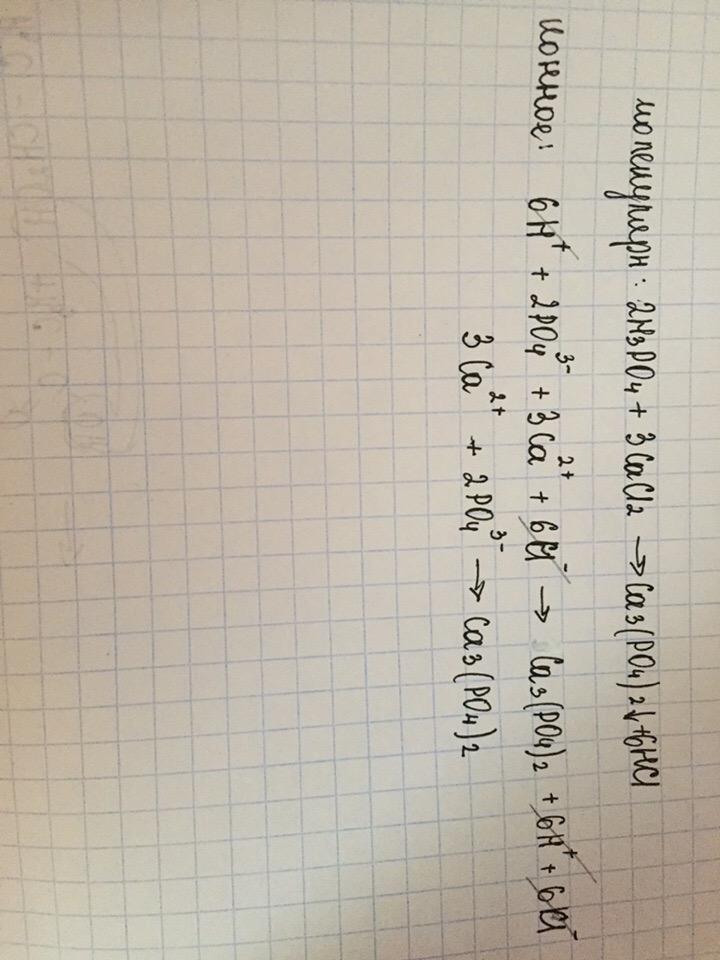 молекулярн: 2H₃PO₄ + 3CaCl₂ → Ca₃(PO₄)₂↓+6HCl
ионное: 6H⁺ + 2PO₄³⁻ + 3Ca²⁺ + 6Cl⁻ → Ca₃(PO₄)₂ + 6H⁺ + 6Cl⁻
3Ca²⁺ + 2PO₄³⁻ → Ca₃(PO₄)₂